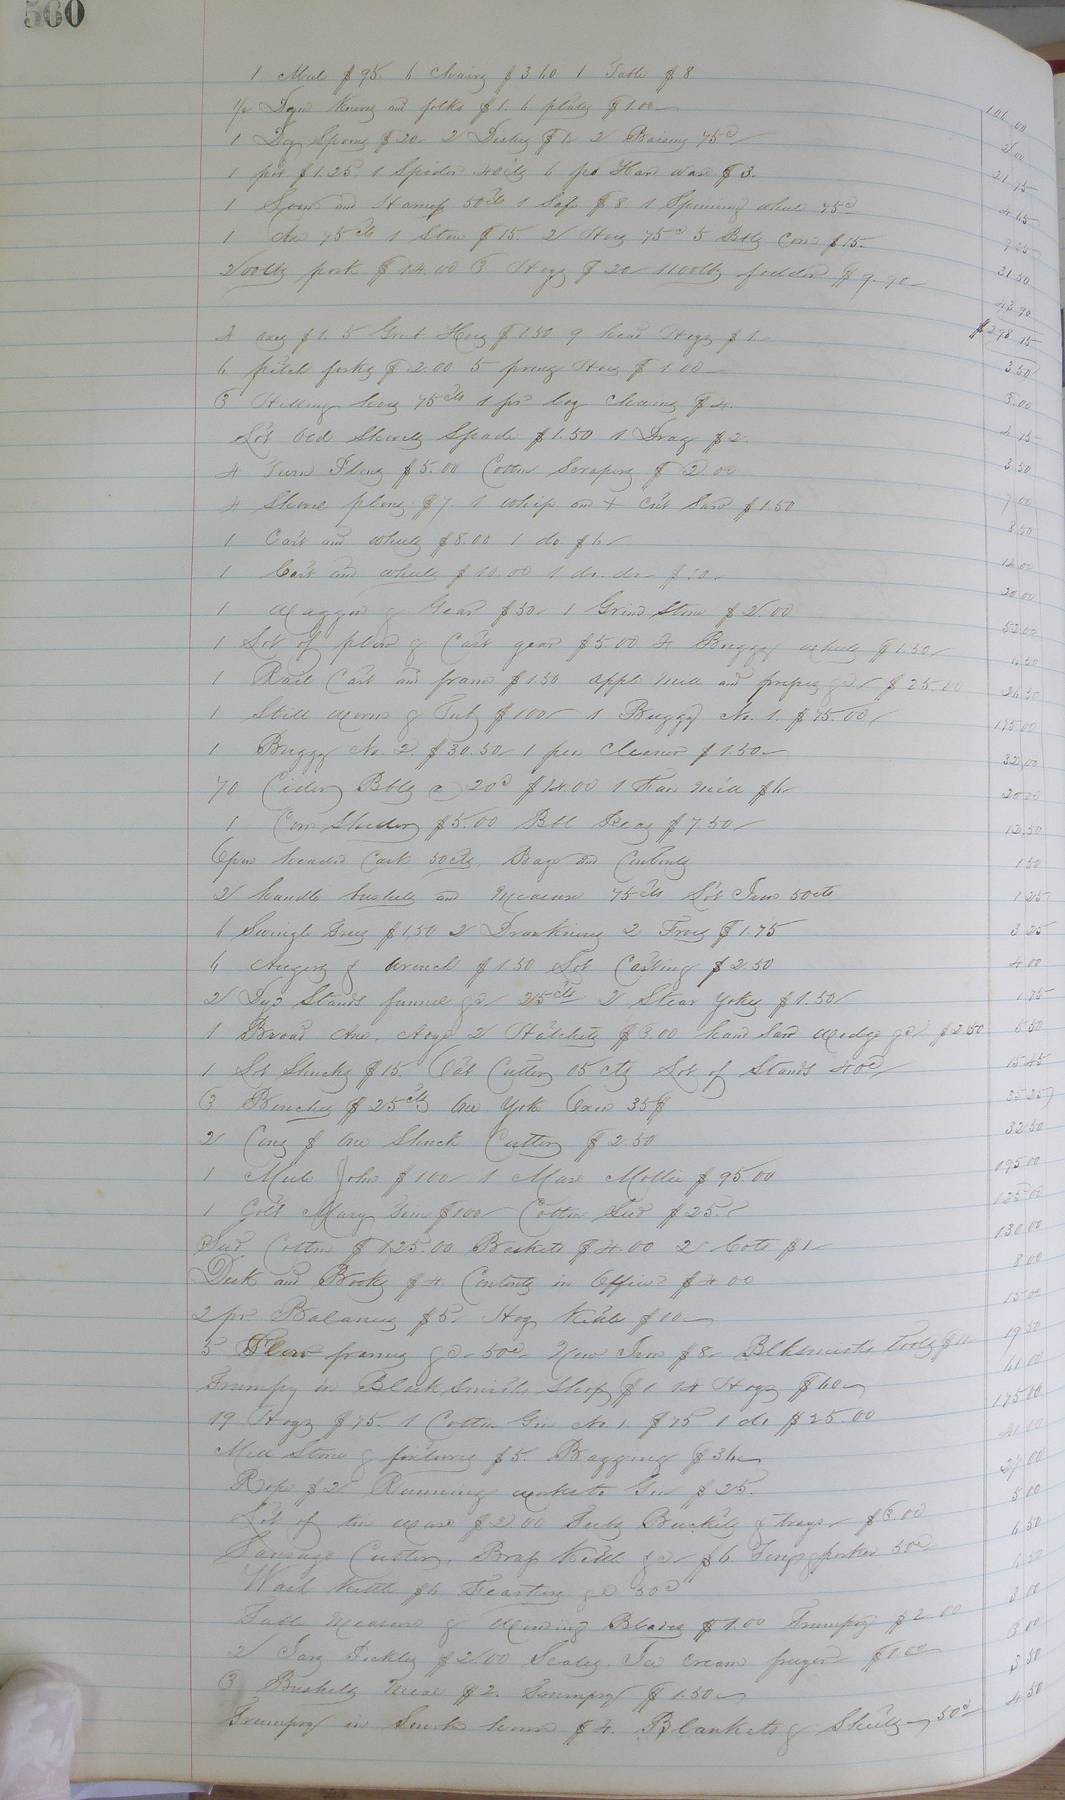 560
1 Mule $95. 6 Chairs $3.60 1 Table $8
½ Dozn Knives and folks $1. 6 plates $1.00 101.00
1 Doz Spoons $20 2 Dishes $1. 2 Basins 75c 2.00
1 pot $1.25 1 Spider 40cts 6 ps Hard ware $3. 21.75
1 Loom and Harness 50cts 1 Safe $8 1 Spinning wheel 75c 4.65
1 Axe 75cts 1 Stove $15. 2 Hoes 75c 5 Bbls Corn $15. 9.25
200lbs pork $14.00 3 Hogs $20 1100lbs fodder $9.90 31.50
43.90
$298.15
4 axes $1. 5 Grub Hoes $1.50 9 weed Hogs $1. 3.50
6 pitch forks $2.00 5 prong Hoes $1.00 3.00
3 Hilling hoes 75cts 1 pr log Chains $4. 4.75
Lot Old Shovels Spade $1.50 1 Drag $2 3.50
4 Turn Plows $5.00 Cotton Scrapers $2.00 7.00
4 Shovel plows $7. 1 whip and + Cut Saw $1.50 8.50
1 Cart and wheels $8.00 1 do $6 14.00
1 Cart and wheels $10.00 1 do. do $10 20.00
1 Waggon & Gear $50 1 Grind Stone $2.00 52.00
1 Lot of plow & Cart gear $5.00 4 Buggy wheels $1.50 6.50
1 Rail Cart and frame $1.50 apple Mill and press $25.00 26.50
1 Still Worm & Tubs $100 1 Buggy No. 1. $75.00 175.00
1 Buggy No. 2. $30.50 1 pea Cleaner $1.50 32.00
70 Cider Bbls a 20c $14.00 1 Fan Mill $6 20.00
1 Corn Sheller $5.00 Bbl Peas $7.50 12.50
Open headed Cask 50cts. Bags and Contents 1.50
2 handle baskets and Measure 75cts Lot Iron 50cts 1.25
6 Swingle trees $1.50 2 2 Froes $1.75 3.25
4 Augers & Wrench $1.50 Lot Casting $2.50 4.00
2 Stands funnel 25cts 2 Stear Yokes $1.50 1.75
1 Broad Axe. 2 Hatchets $3.00 hand Saw wedge $2.50 5.50
1 Lot Shucks $15 Oat Cutter 05cts Lot of Stands 40c 15.45
3 Benches $25cts Ox Yoke 35$
2 & Shuck Cutter $2.50 32.50
1 Mule John $100 1 Mare Mollie $95.00 195.00
1 Colt Mary $100 Cotton Seed $25. 125.00
Seed Cotton $125.00 Baskets $4.00 2 Cots $1 130.00
Desk and Books $4 Contents in Office $4.00 8.00
2 pr Balances $5 Hog Kettle $10 15.00
5 Plow frames 50c New Iron $8 Blksmiths Tools $11 19.50
Trumpry in Black Smiths Shop $1 14 Hogs $60 61.00
19 Hogs $75. 1 Cotton Gin No. 1. $75 1 do $25.00 175.00
Mill Stone & fixtures $5. Bagging $36
Rope $2 Running Gin $25. 27.00
Lot of tin ware $2.00 Tubs Buckets & trays $3.00 5.00
Sausage Cutter. Brass Kettle $6 50c 6.50
Wash Kettle $6 50c 6.50
Table Measure & Blades $1.00 Trumpry $2.00 3.00
2 Jars Pickles $2.00 Scales. Ice Cream freezer $1.00 3.00
3 Bushels Meal $2. Trumpry $1.50 3.50
Trumpry in Smoke house $4. Blankets & Sheets 50c 4.50